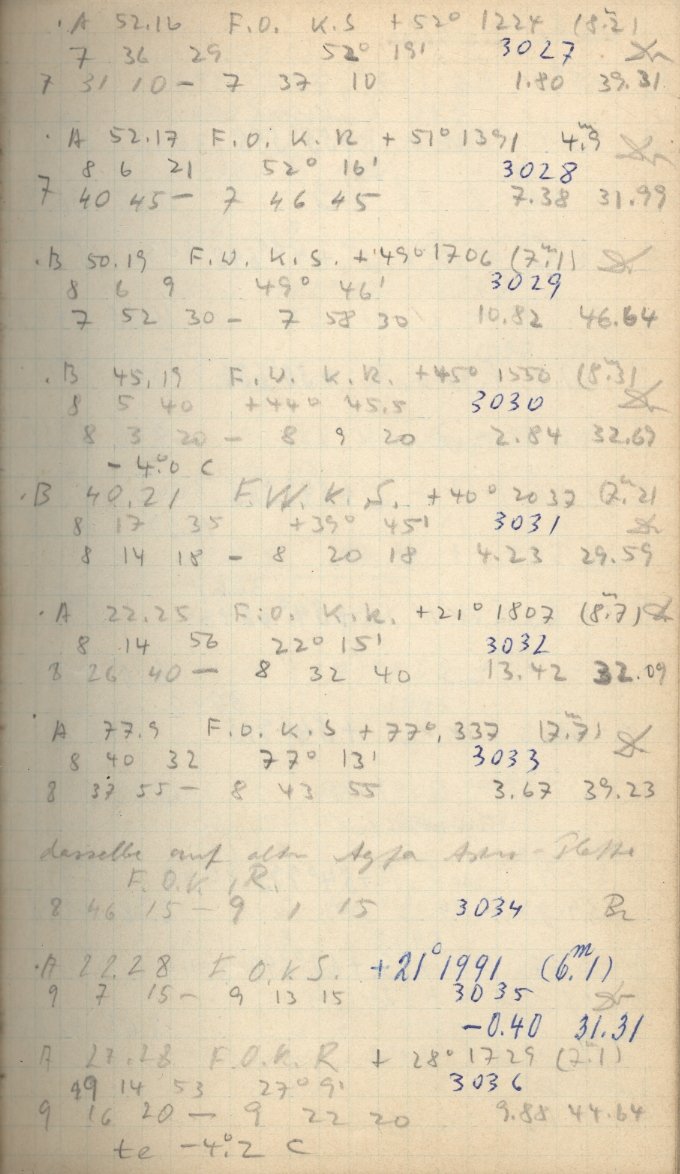 · A 52.16 F.O. K.S +52° 1224 (8.ᵐ2)
7 36 29 52° 19' 3027
7 31 10 – 7 37 10 1.80 39.31
· A 52.17 F.O. K.R +51° 1391 4.ᵐ9
8 6 21 52° 16' 3028
7 40 45 – 7 46 45 7.38 31.99
· B 50.19 F.W. K.S. +49° 1706 (7.ᵐ1)
8 6 9 49° 46' 3029
7 52 30 – 7 58 30 10.82 46.64
· B 45.19 F.W. K.R. +45° 1550 (8.ᵐ3)
8 5 40 +44° 45.5 3030
8 3 20 – 8 9 20 2.84 32.67
– 4.°0 C
· B 40.21 F.W. K.S. +40° 2037 (7.ᵐ2)
8 17 35 +39° 45' 3031
8 14 18 – 8 20 18 4.23 29.59
· A 22.25 F.O. K.R. +21° 1807 (8.ᵐ7)
8 14 56 22° 15' 3032
8 26 40 – 8 32 40 13.42 32.09
· A 77.9 F.O. K.S +77°, 337 (7.ᵐ7)
8 40 32 77° 13' 3033
8 37 55 – 8 43 55 3.67 39.23
dasselbe auf alter Agfa Astro-Platte
F.O.K.R.
8 46 15 – 9 1 15 3034 Br
· A 22.28 F.O.K.S. +21° 1991 (6.ᵐ1)
9 7 15 – 9 13 15 3035
–0.40 31.31
A 27.28 F.O.K.R +28° 1729 (7.ᵐ1)
9 14 53 27° 9' 3036
9 16 20 – 9 22 20 9.88 44.64
te –4.°2 C